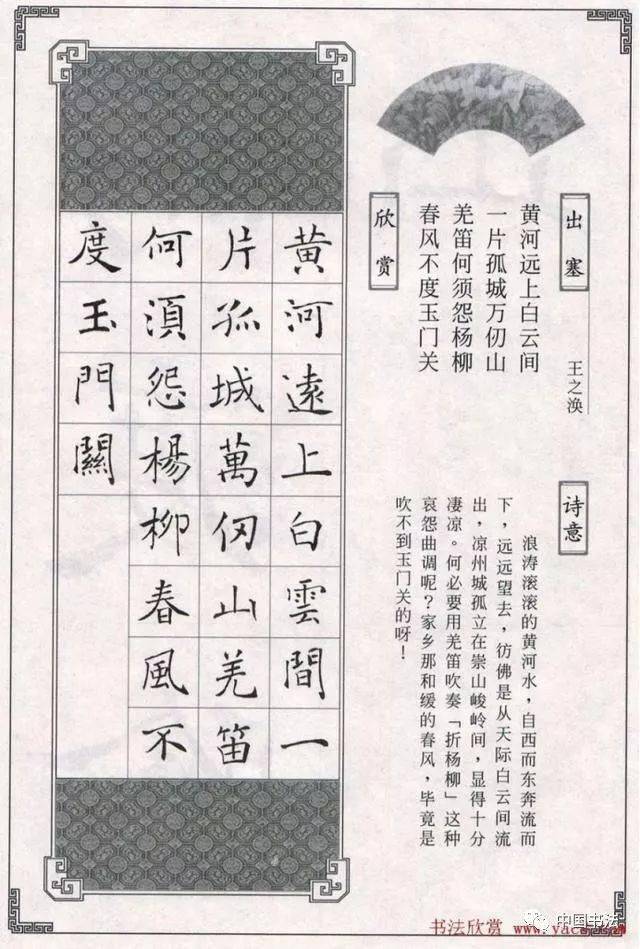 出塞
王之涣
黄河远上白云间
一片孤城万仞山
羌笛何须怨杨柳
春风不度玉门关
欣赏
诗意
浪涛滚滚的黄河水，自西而东奔流而
下，远远望去，彷佛是从天际白云间流
出，凉州城孤立在崇山峻岭间，显得十分
凄凉。何必要用羌笛吹奏「折杨柳」这种
哀怨曲调呢？家乡那和缓的春风，毕竟是
吹不到玉门关的呀！
黃河遠上白雲間一
片孤城萬仞山羌笛
何須怨楊柳春風不
度玉門關
书法欣赏
中国书法